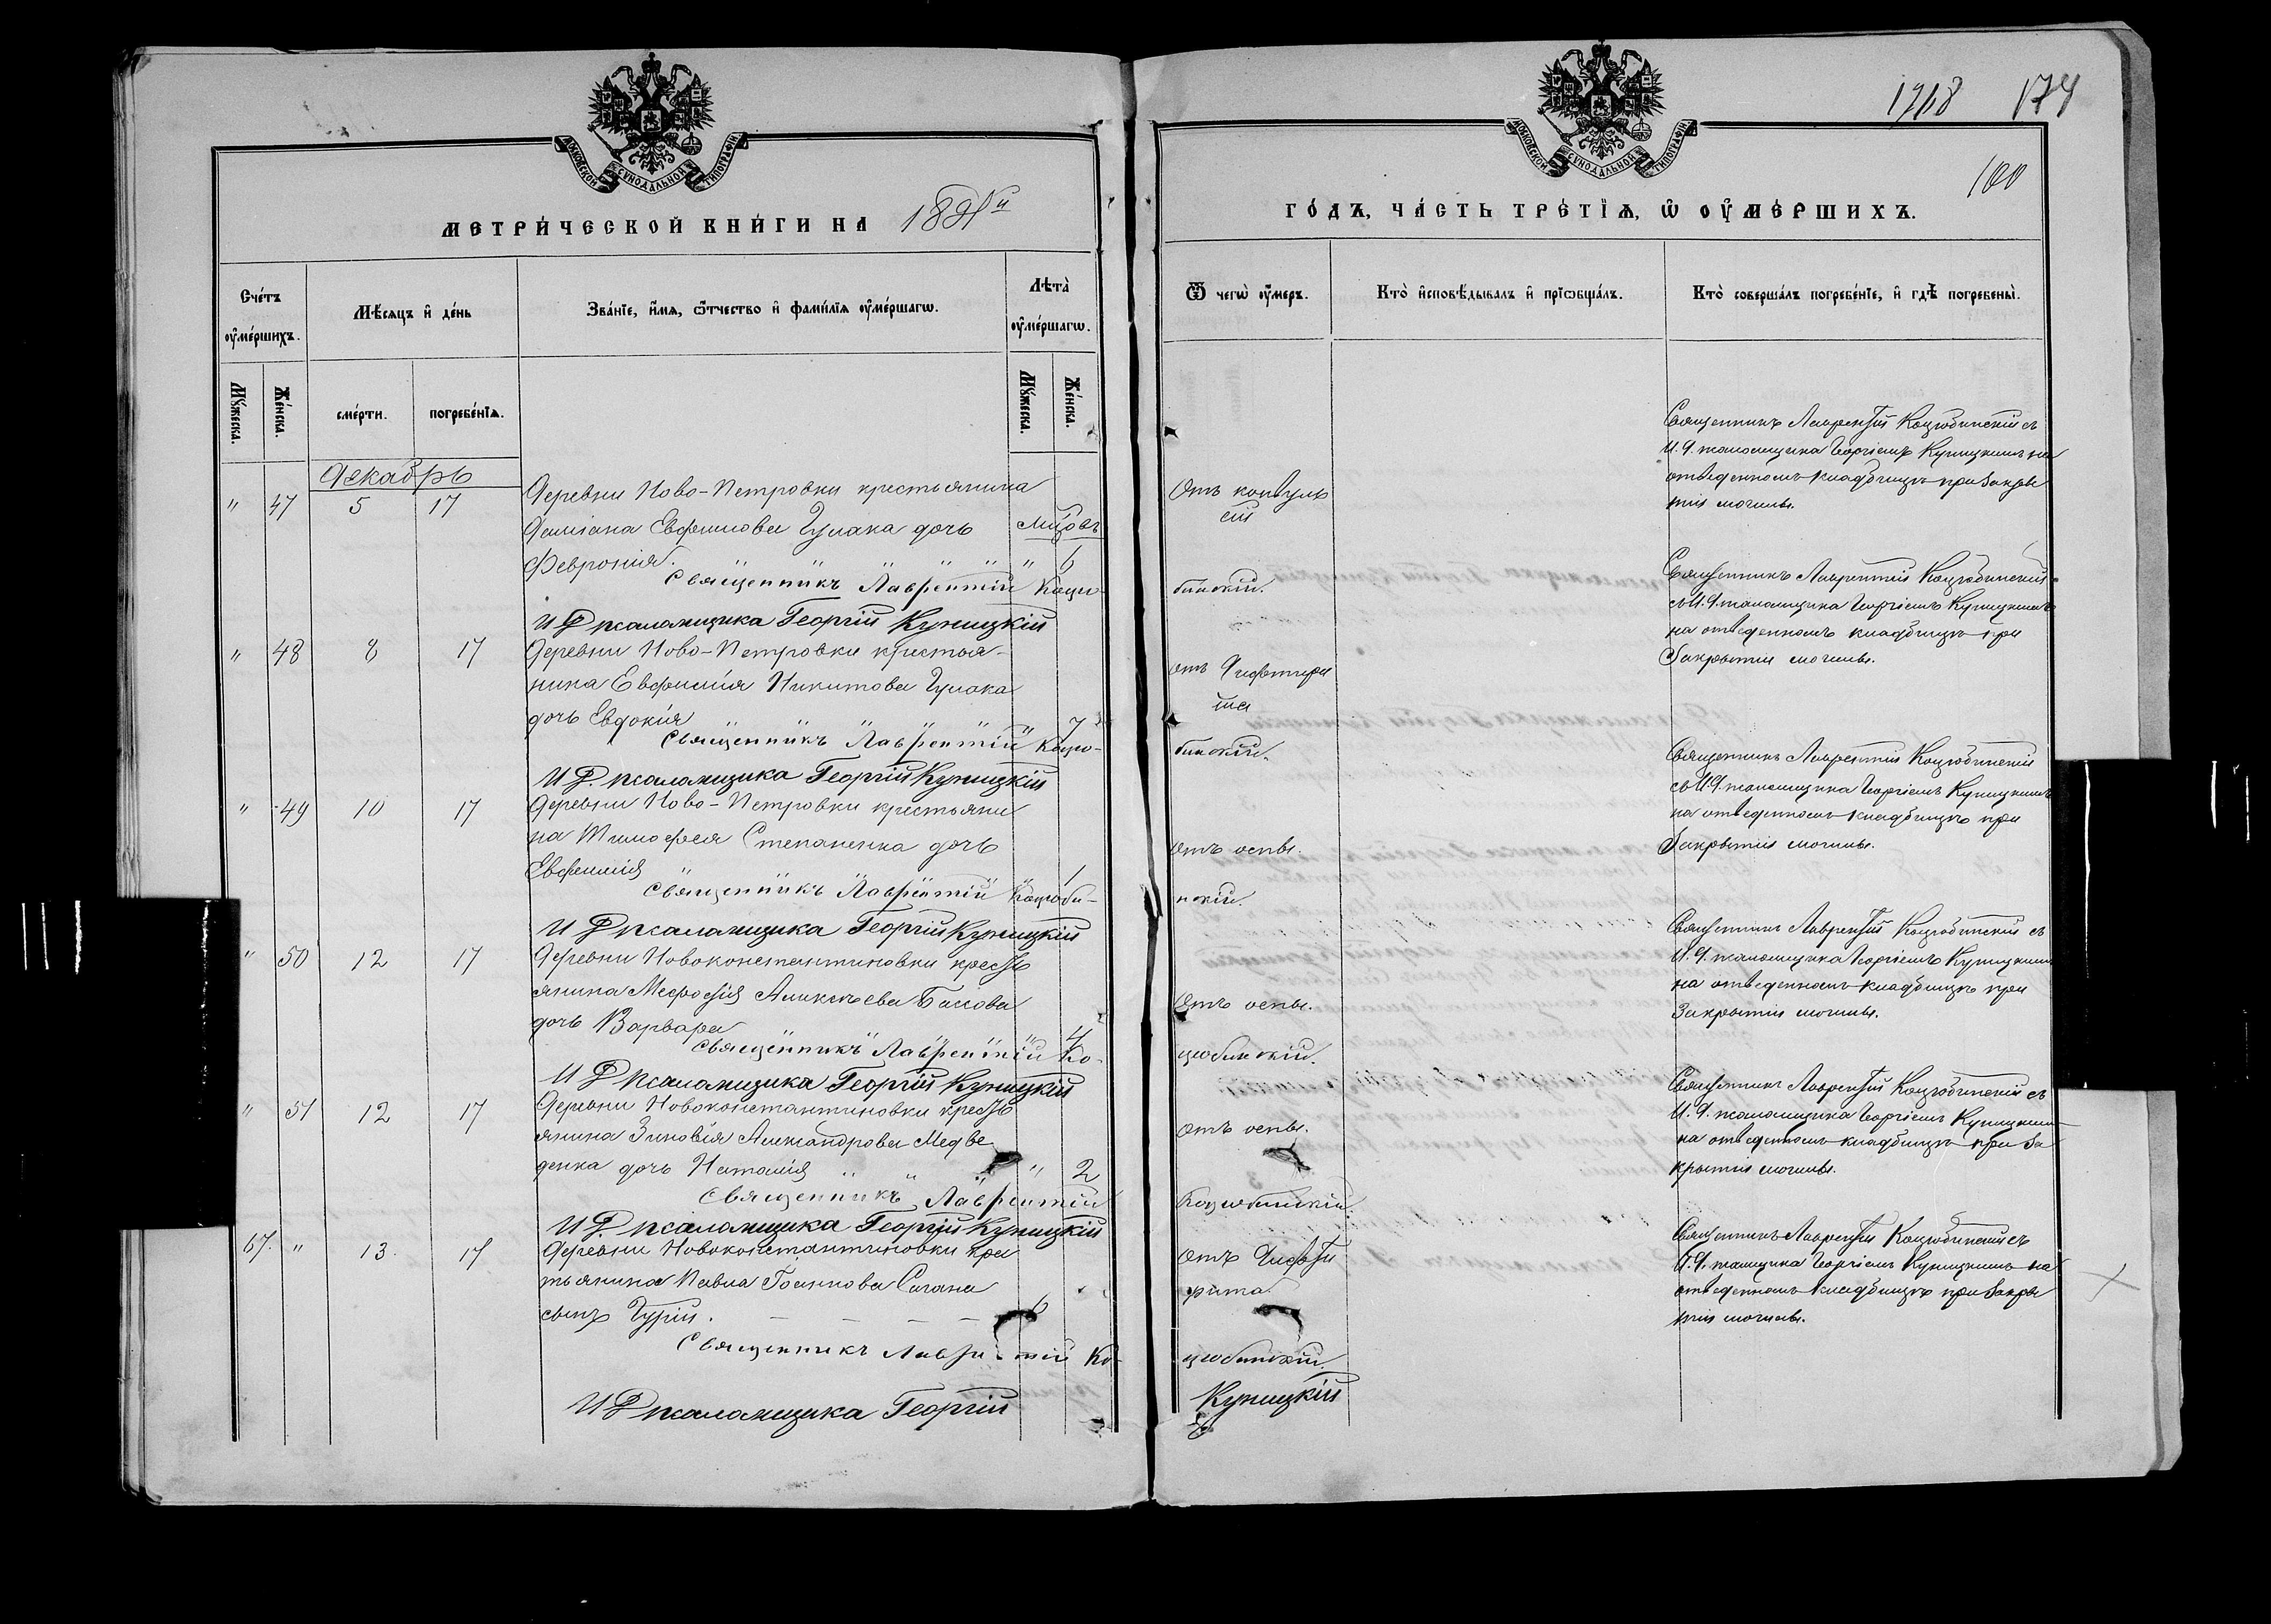 МОСКОВСКОЙ СѴНОДАЛЬНОЙ ТИПОГРАФІИ
МЕТРИ́ЧЕСКОЙ КНИ́ГИ НА
Сче́тъ ᲂу҆ме́ршихъ.
Мѣ́сяцъ и҆ де́нь
Зва́нїе, и҆́мѧ, ѻ҆́тчество и҆ фами́лїѧ ᲂу҆ме́ршагѡ.
Лѣта̀ ᲂу҆ме́ршагѡ.
Мꙋ́жеска.
Же́нска.
сме́рти.
погребе́нїѧ.
Мꙋ́жеска.
Же́нска.
Декабрь
" 47 5 17 Деревни Ново-Петровки крестьянина
Даміана Евфимова Гулака дочь мѣсяцовъ
Февронія. " 6
Священникъ Лаврентій Коцю-
И Д псаломщика Георгій Куницкій
" 48 8 17 Деревни Ново-Петровки крестья-
нина Евфимія Никитова Гулака
дочь Евдокія " 7
Священникъ Лаврентій Коцю-
И Д. псаломщика Георгій Куницкій
" 49 10 17 Деревни Ново-Петровки крестьяни
на Тимофея Степаненка дочь
Евфимія " 1
Священникъ Лаврентій Коцюби-
И Д псаломщика Георгій Куницкій
" 50 12 17 Деревни Новоконстантиновки кресть
янина Алексѣева
дочь Варвара " 4
Священникъ Лаврентій Ко-
И Д псаломщика Георгій Куницкій
" 51 12 17 Деревни Новоконстантиновки кресть
янина Зиновія Александрова Медве
денка дочь Наталія " 2
Священникъ Лаврентій
И Д. псаломщика Георгій Куницкій
67. " 13. 17 Деревни Новоконстантиновки крес
тьянина Павла Іоаннова Сагана
сынъ Гурій. — — — — 6
Священникъ Лаврентій Ко-
И Д псаломщика Георгій
1718 174
100
МОСКОВСКОЙ СѴНОДАЛЬНОЙ ТИПОГРАФІИ
ГО́ДЪ, ЧА́СТЬ ТРЕ́ТЇѦ, Ѡ҆ ОУ҆МЕ́РШИХЪ.
Ѿ чегѡ̀ ᲂу҆́меръ.
Кто̀ и҆сповѣ́дывалъ и҆ прїѡбща́лъ.
Кто̀ соверша́лъ погребе́нїе, и҆ гдѣ̀ погребены̀.
Отъ конвуль
сій
Священникъ Лаврентій Коцюбинскій съ
И. Д. псаломщика Георгіемъ Куницкимъ на
отведенномъ кладбищѣ при закры
тіи могилы.
бинскій.
отъ Дифтери
та
Священникъ Лаврентій Коцюбинскій
съ И. Д. псаломщика Георгіемъ Куницкимъ
на отведенномъ кладбищѣ при
Закрытіи могилы.
бинскій.
отъ оспы.
Священникъ Лаврентій Коцюбинскій
съ И. Д. псаломщика Георгіемъ Куницкимъ
на отведенномъ кладбищѣ при
Закрытіи могилы.
нскій.
Отъ оспы.
Священникъ Лаврентій Коцюбинскій съ
И. Д. псаломщика Георгіемъ Куницкимъ
на отведенномъ кладбищѣ при
Закрытіи могилы.
цюбинскій.
отъ оспы.
Священникъ Лаврентій Коцюбинскій съ
И. Д. псаломщика Георгіемъ Куницкимъ
на отведенномъ кладбищѣ при за
крытіи могилы.
Коцюбинскій.
отъ Дифте
рита
Священникъ Лаврентій Коцюбинскій съ
И. Д. Георгіемъ Куницкимъ на
отведенномъ кладбищѣ при закры
тіи могилы.
цюбинскій.
Куницкій